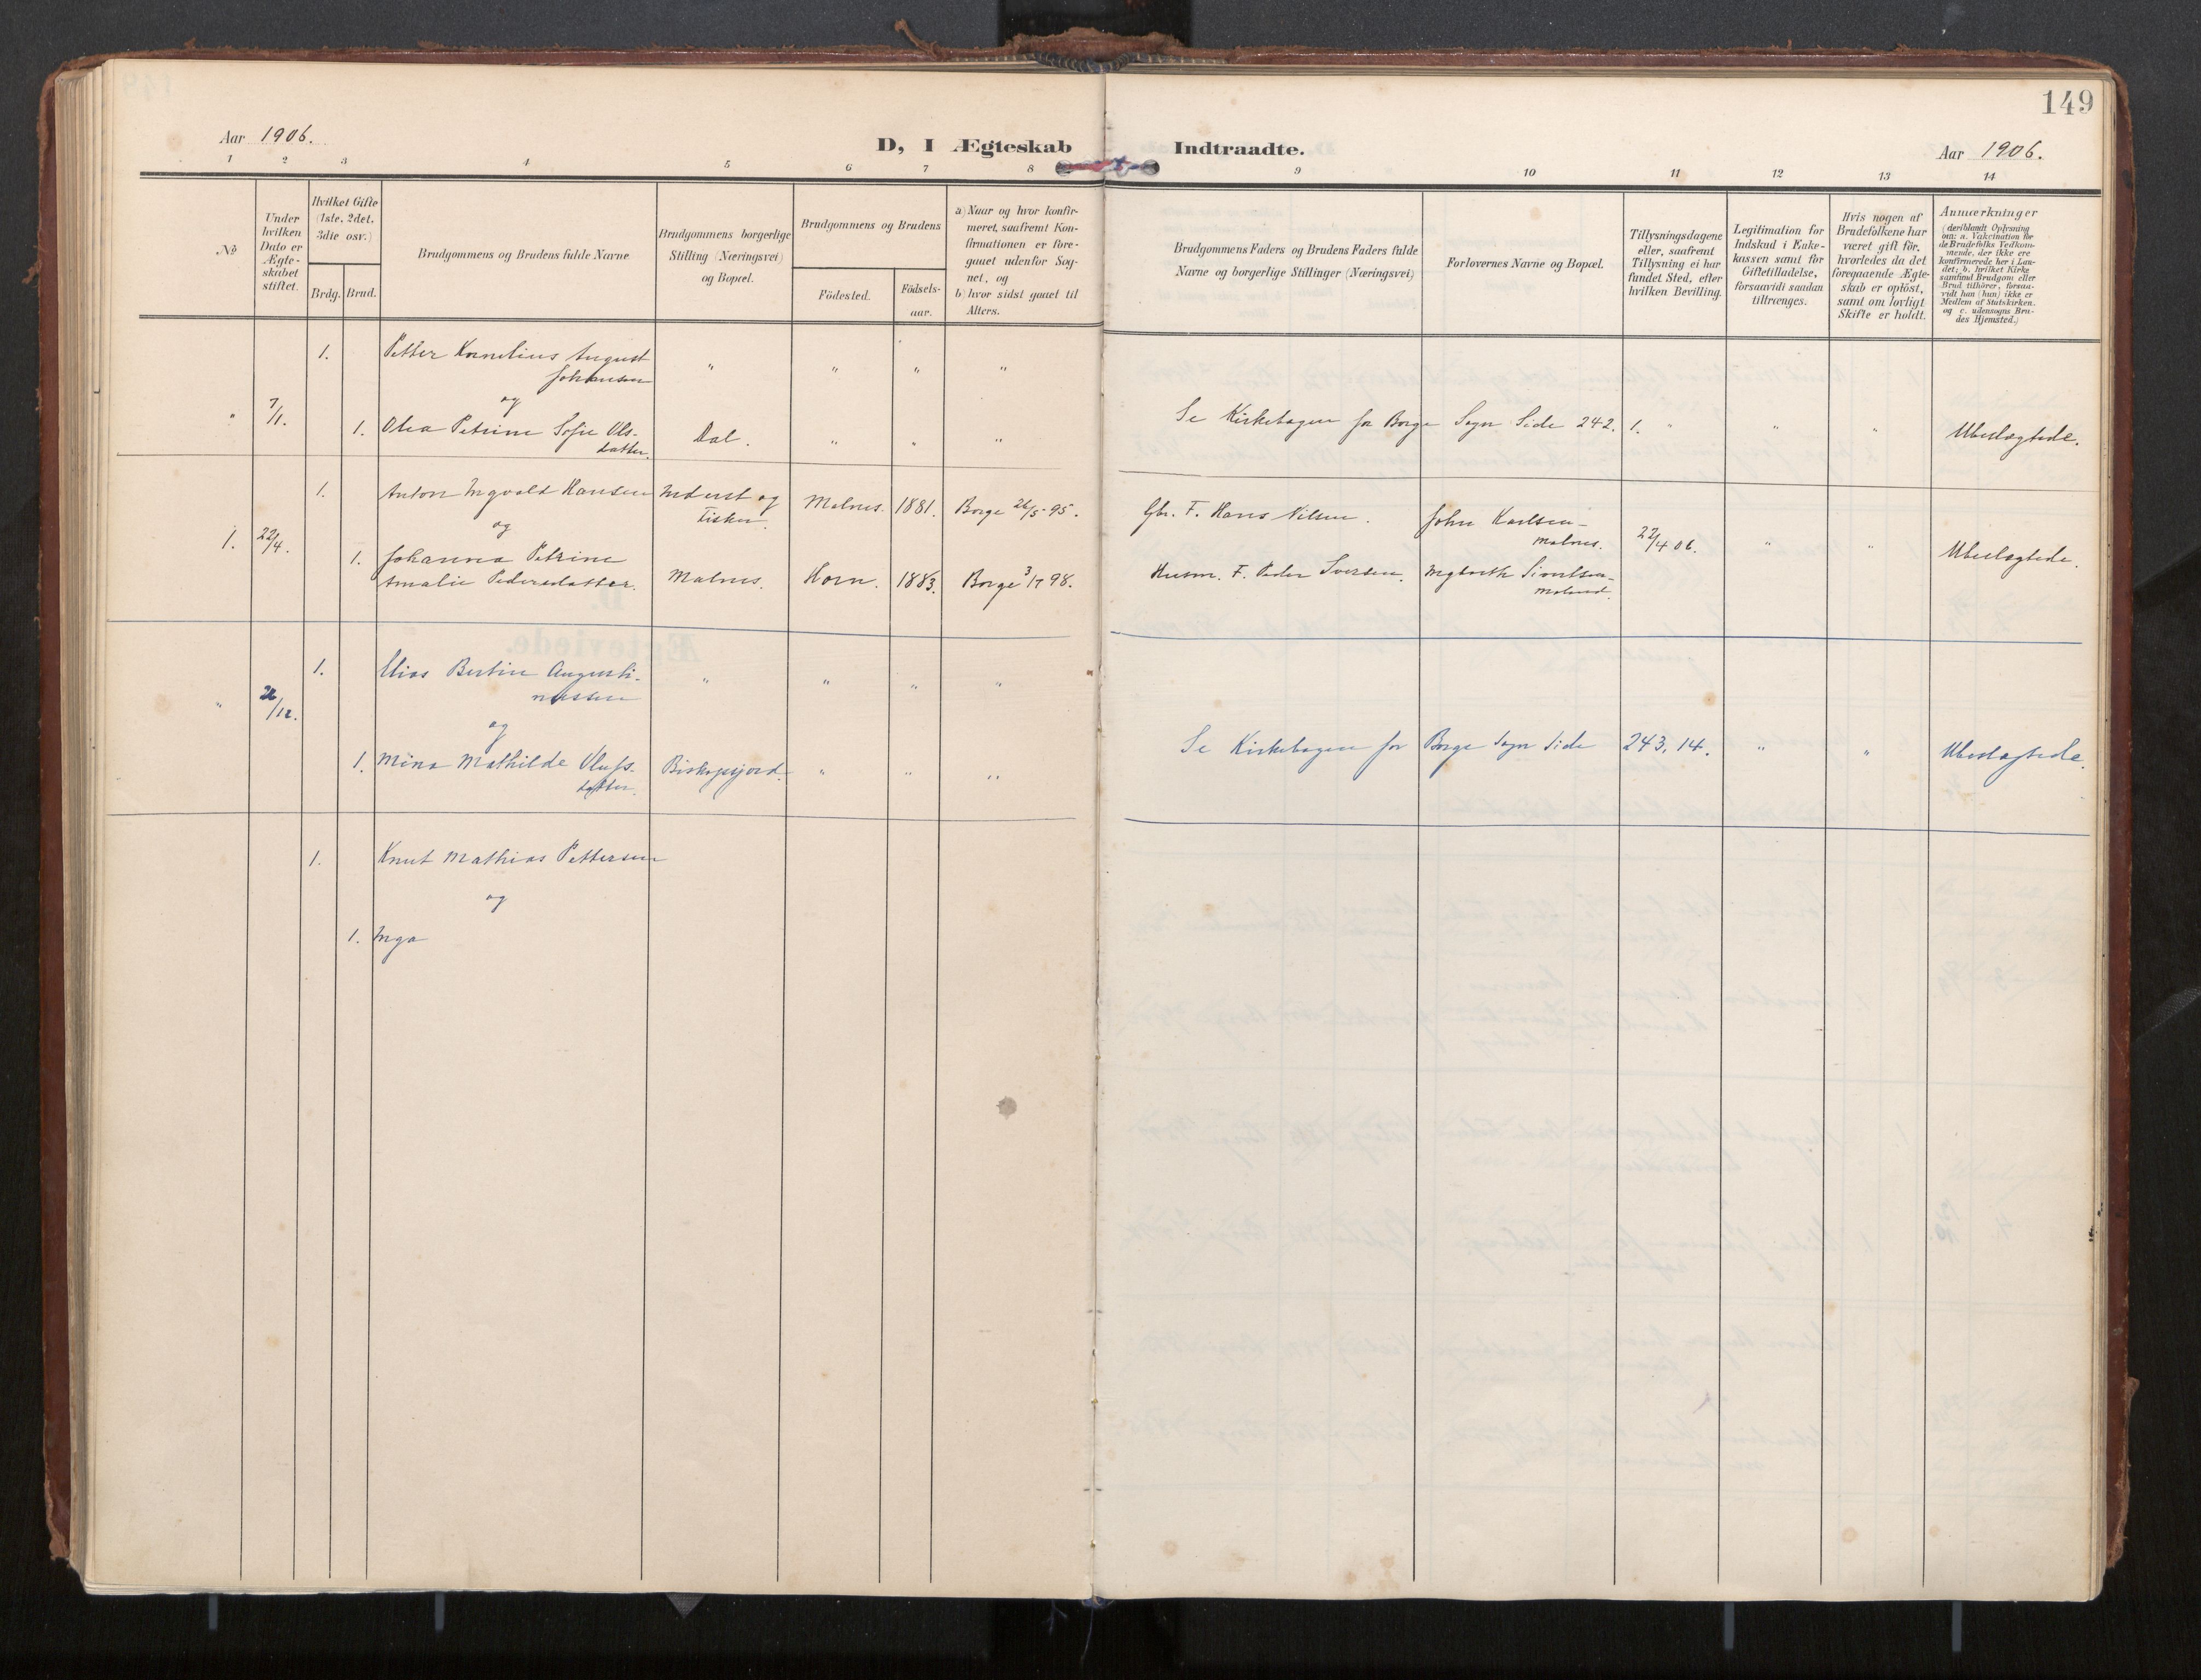 149
Aar 1906.
D, I Ægteskab Indtraadte.
Aar 1906.
1 2 3 4 5 6 7 8 9 10 11 12 13 14
No
Under
hvilken
Dato er
Ægte-
skabet
stiftet.
Hvilket Gifte
(1ste, 2det,
3die osv.)
Brdg. Brud.
Brudgommens og Brudens fulde Navne
Brudgommens borgerlige
Stilling (Næringsvei)
og Bopæl.
Brudgommens og Brudens
Födested.
Födsels-
aar.
a) Naar og hvor konfir-
meret, saafremt Kon-
firmationen er fore-
gaaet udenfor Sog-
net, og
b) hvor sidst gaaet til
Alters.
Brudgommens Faders og Brudens Faders fulde
Navne og borgerlige Stillinger (Næringsvei)
Forlovernes Navne og Bopæl.
Tillysningsdagene
eller, saafremt
Tillysning ei har
fundet Sted, efter
hvilken Bevilling.
Legitimation for
Indskud i Enke-
kassen samt for
Giftetilladelse,
forsaavidt saadan
tiltrænges.
Hvis nogen af
Brudefolkene har
været gift för,
hvorledes da det
foregaaende Ægte-
skab er oplöst,
samt om lovligt
Skifte er holdt.
Anmærkninger
(deriblandt Oplysning
om: a. Vakcination for
de Brudefolks Vedkom-
mende, der ikke ere
konfirmerede her i Lan-
det; b. hvilket Kirke-
samfund Brudgom eller
Brud tilhörer, forsaa-
vidt han (hun) ikke er
Medlem af Statskirken.
og c. udensogns Bru-
des Hjemsted.)
1. Petter Kornelius August
Johansen " " " "
og
" 7/1. 1. Olea Petrine Sofie Ols-
datter. Dal. " " " Se Kirkebogen for Borge Sogn Side 242. 1. " " " Ubeslægtede.
1. Anton Ingvald Hansen Inderst og
Fisker. Malnes. 1881. Borge 26/5 95. Gbr. F. Hans Nilsen. John Karlsen
Malnes.
og
1. 22/4. 22/4 06. " " Ubeslægtede.
1. Johanna Petrine
Amalie Pedersdatter. Malnes. Horn. 1883. Borge 3/7 98. Husm. F. Peder Iversen. Ingbrikt Sivertsen
1. Elias Bertin Augusti-
nussen " " " "
" 26/12. og
1. Mina Mathilde Olufs-
datter. Biskopsjord. " " " Se Kirkebogen for Borge Sogn Side 243, 14. " " Ubeslægtede.
1. Knut Mathias Pettersen
og
1. Inga